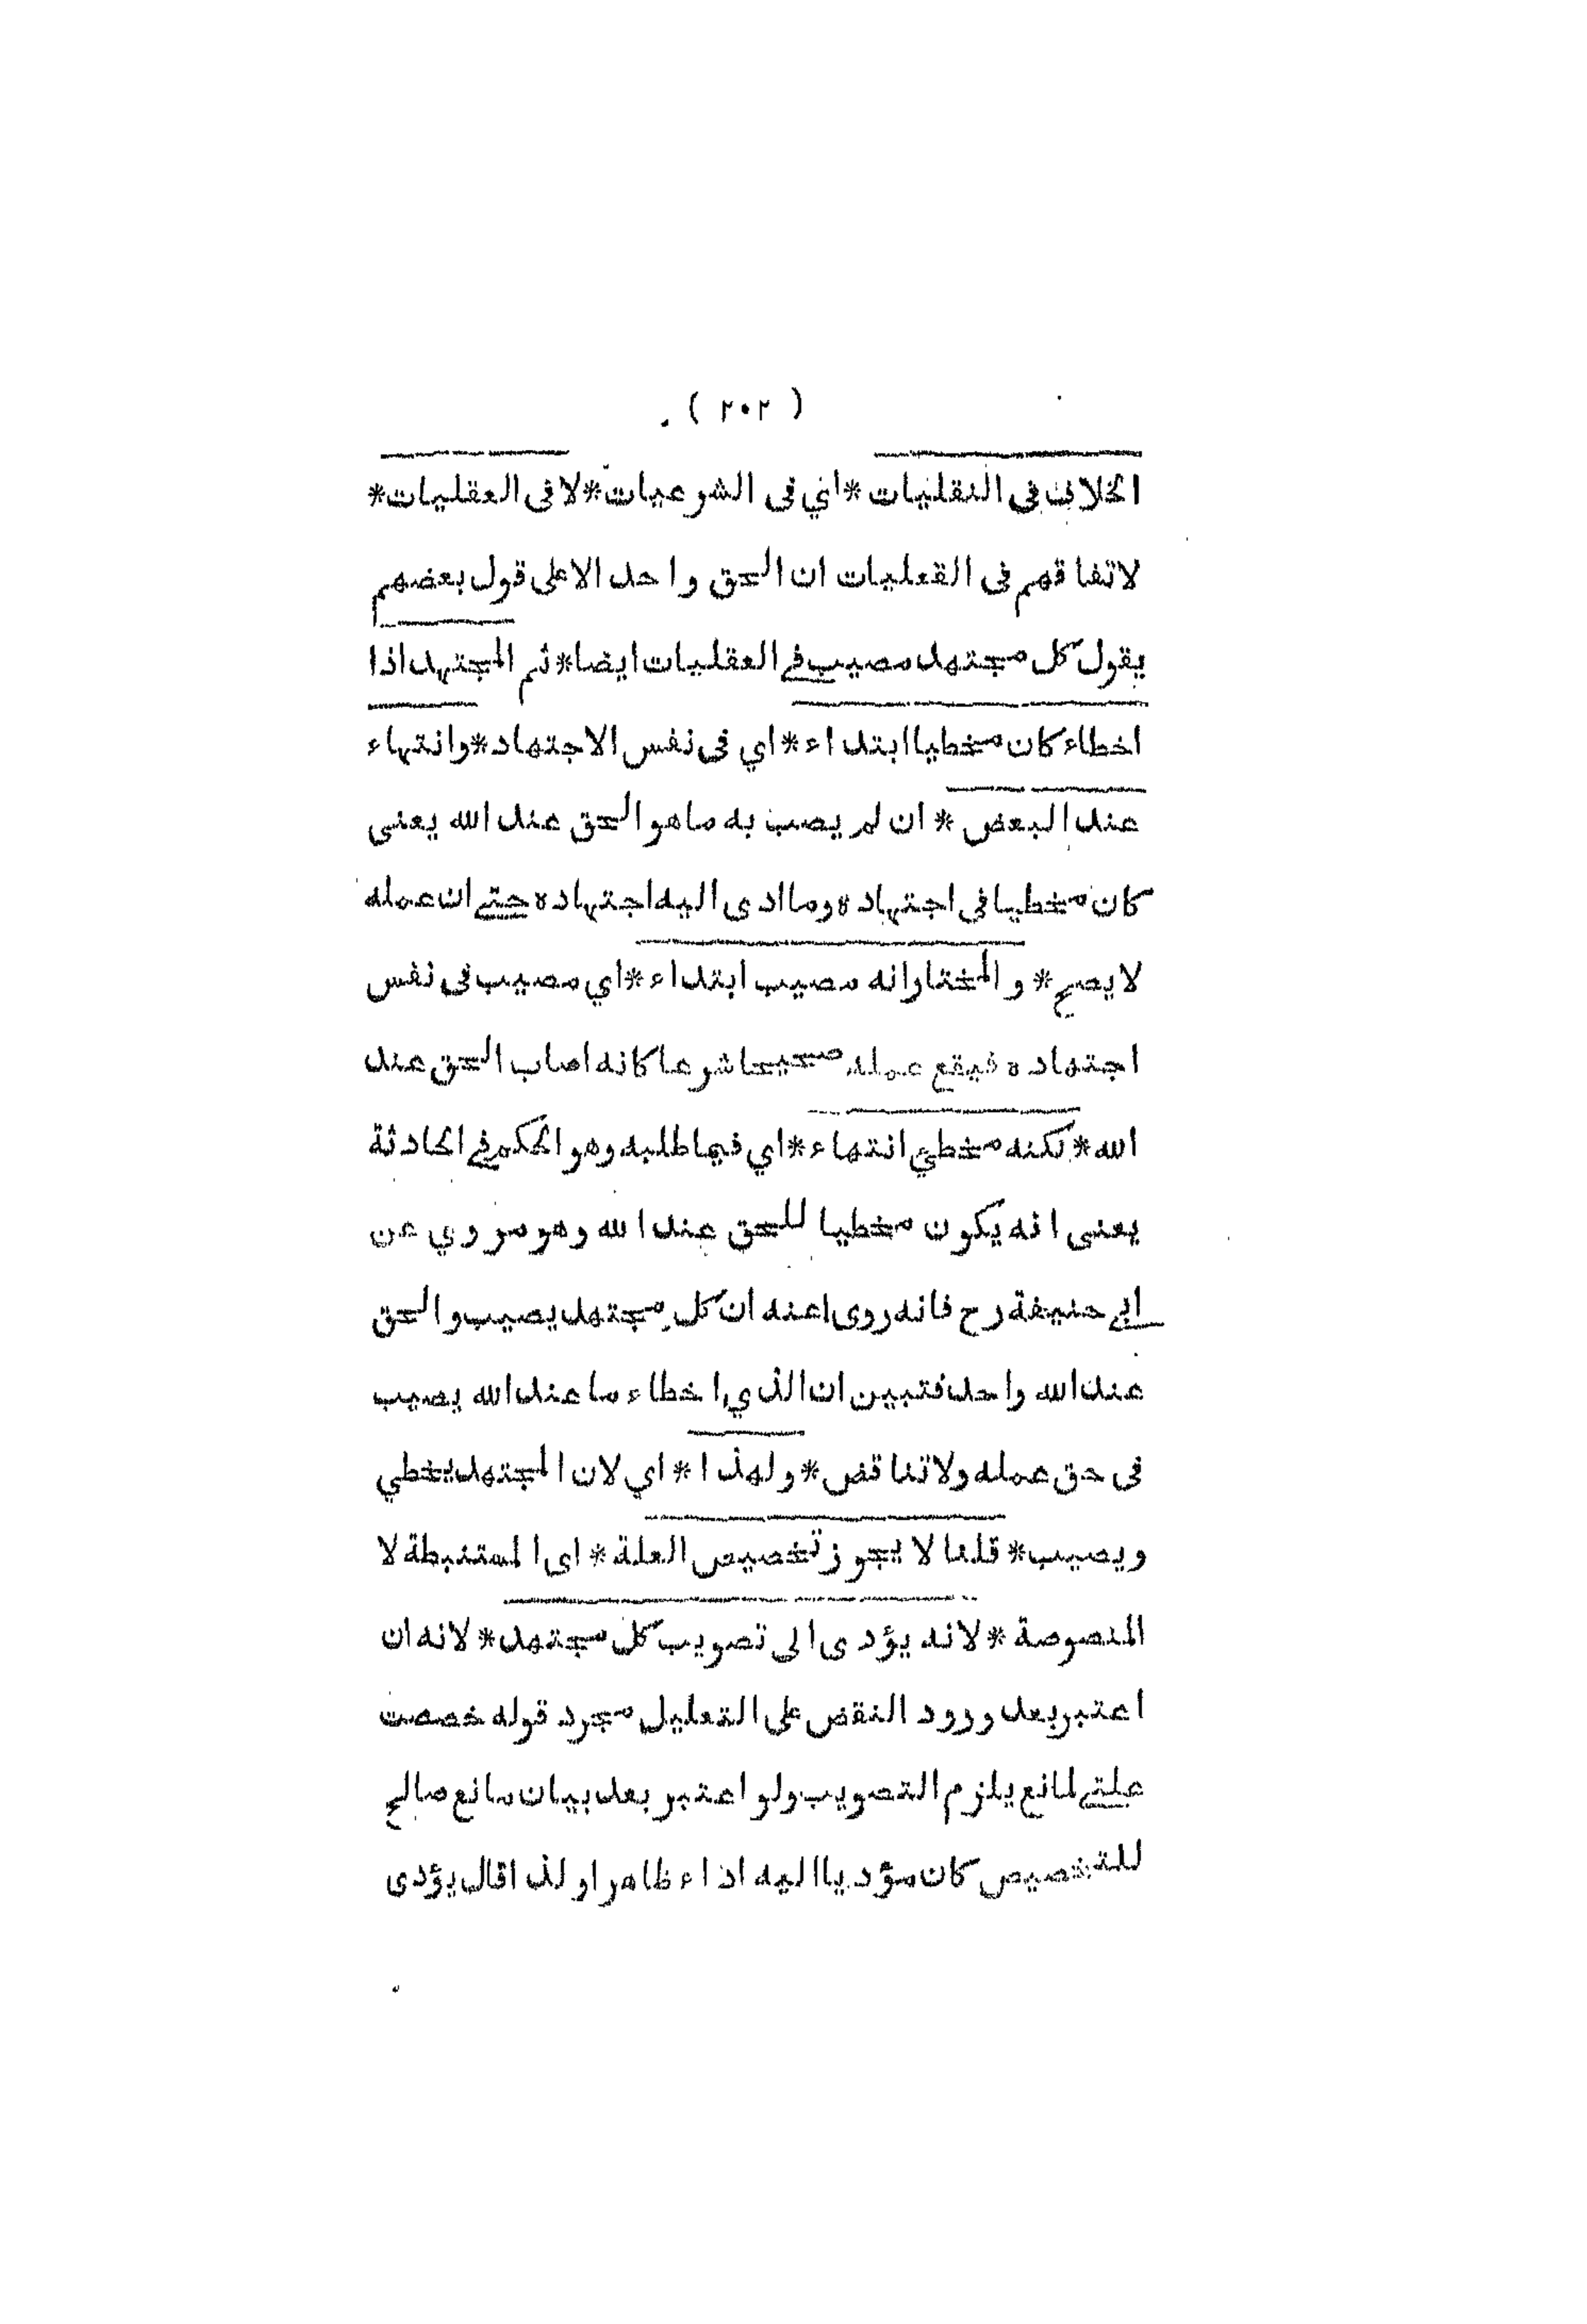 ( ٢٠٢ )
الخلاف فى النقليات * اي فى الشرعيات * لا فى العقليات *
لاتفاقهم فى القعليات ان الحق واحد الا على قول بعضهم
يقول كل مجتهد مصيب في العقليات ايضا * ثم المجتهد اذا
اخطاء كان مخطيا ابتداء * اي فى نفس الاجتهاد * وانتهاء
عند البعض * ان لم يصب به ما هو الحق عند الله يعنى
كان مخطيا فى اجتهاده وما ادى اليه اجتهاده حتے ان عمله
لا يصح * والمختار انه مصيب ابتداء * اي مصيب فى نفس
اجتهاده فيقع عمله صحيحا شرعا كانه اصاب الحق عند
الله * لكنه مخطئ انتهاء * اي فيما طلبه وهو الحكم في الحادثة
يعنى انه يكون مخطيا للحق عند الله وهو مروي عن
ابي حنيفة رح فانه روى عنه ان كل مجتهد يصيب والحق
عند الله واحد فتبين ان الذي اخطاء ما عند الله يصيب
فى حق عمله ولا تناقض * ولهذا * اي لان المجتهد يخطي
ويصيب * قلنا لا يجوز تخصيص العلة * اى المستنبطة لا
المنصوصة * لانه يؤدى الى تصويب كل مجتهد * لانه ان
اعتبر بعد ورود النقض على التعليل مجرد قوله خصصت
علتے لمانع يلزم التصويب ولو اعتبر بعد بيان مانع صالح
للتخصيص كان مؤديا اليه اداء ظاهرا ولذا قال يؤدى